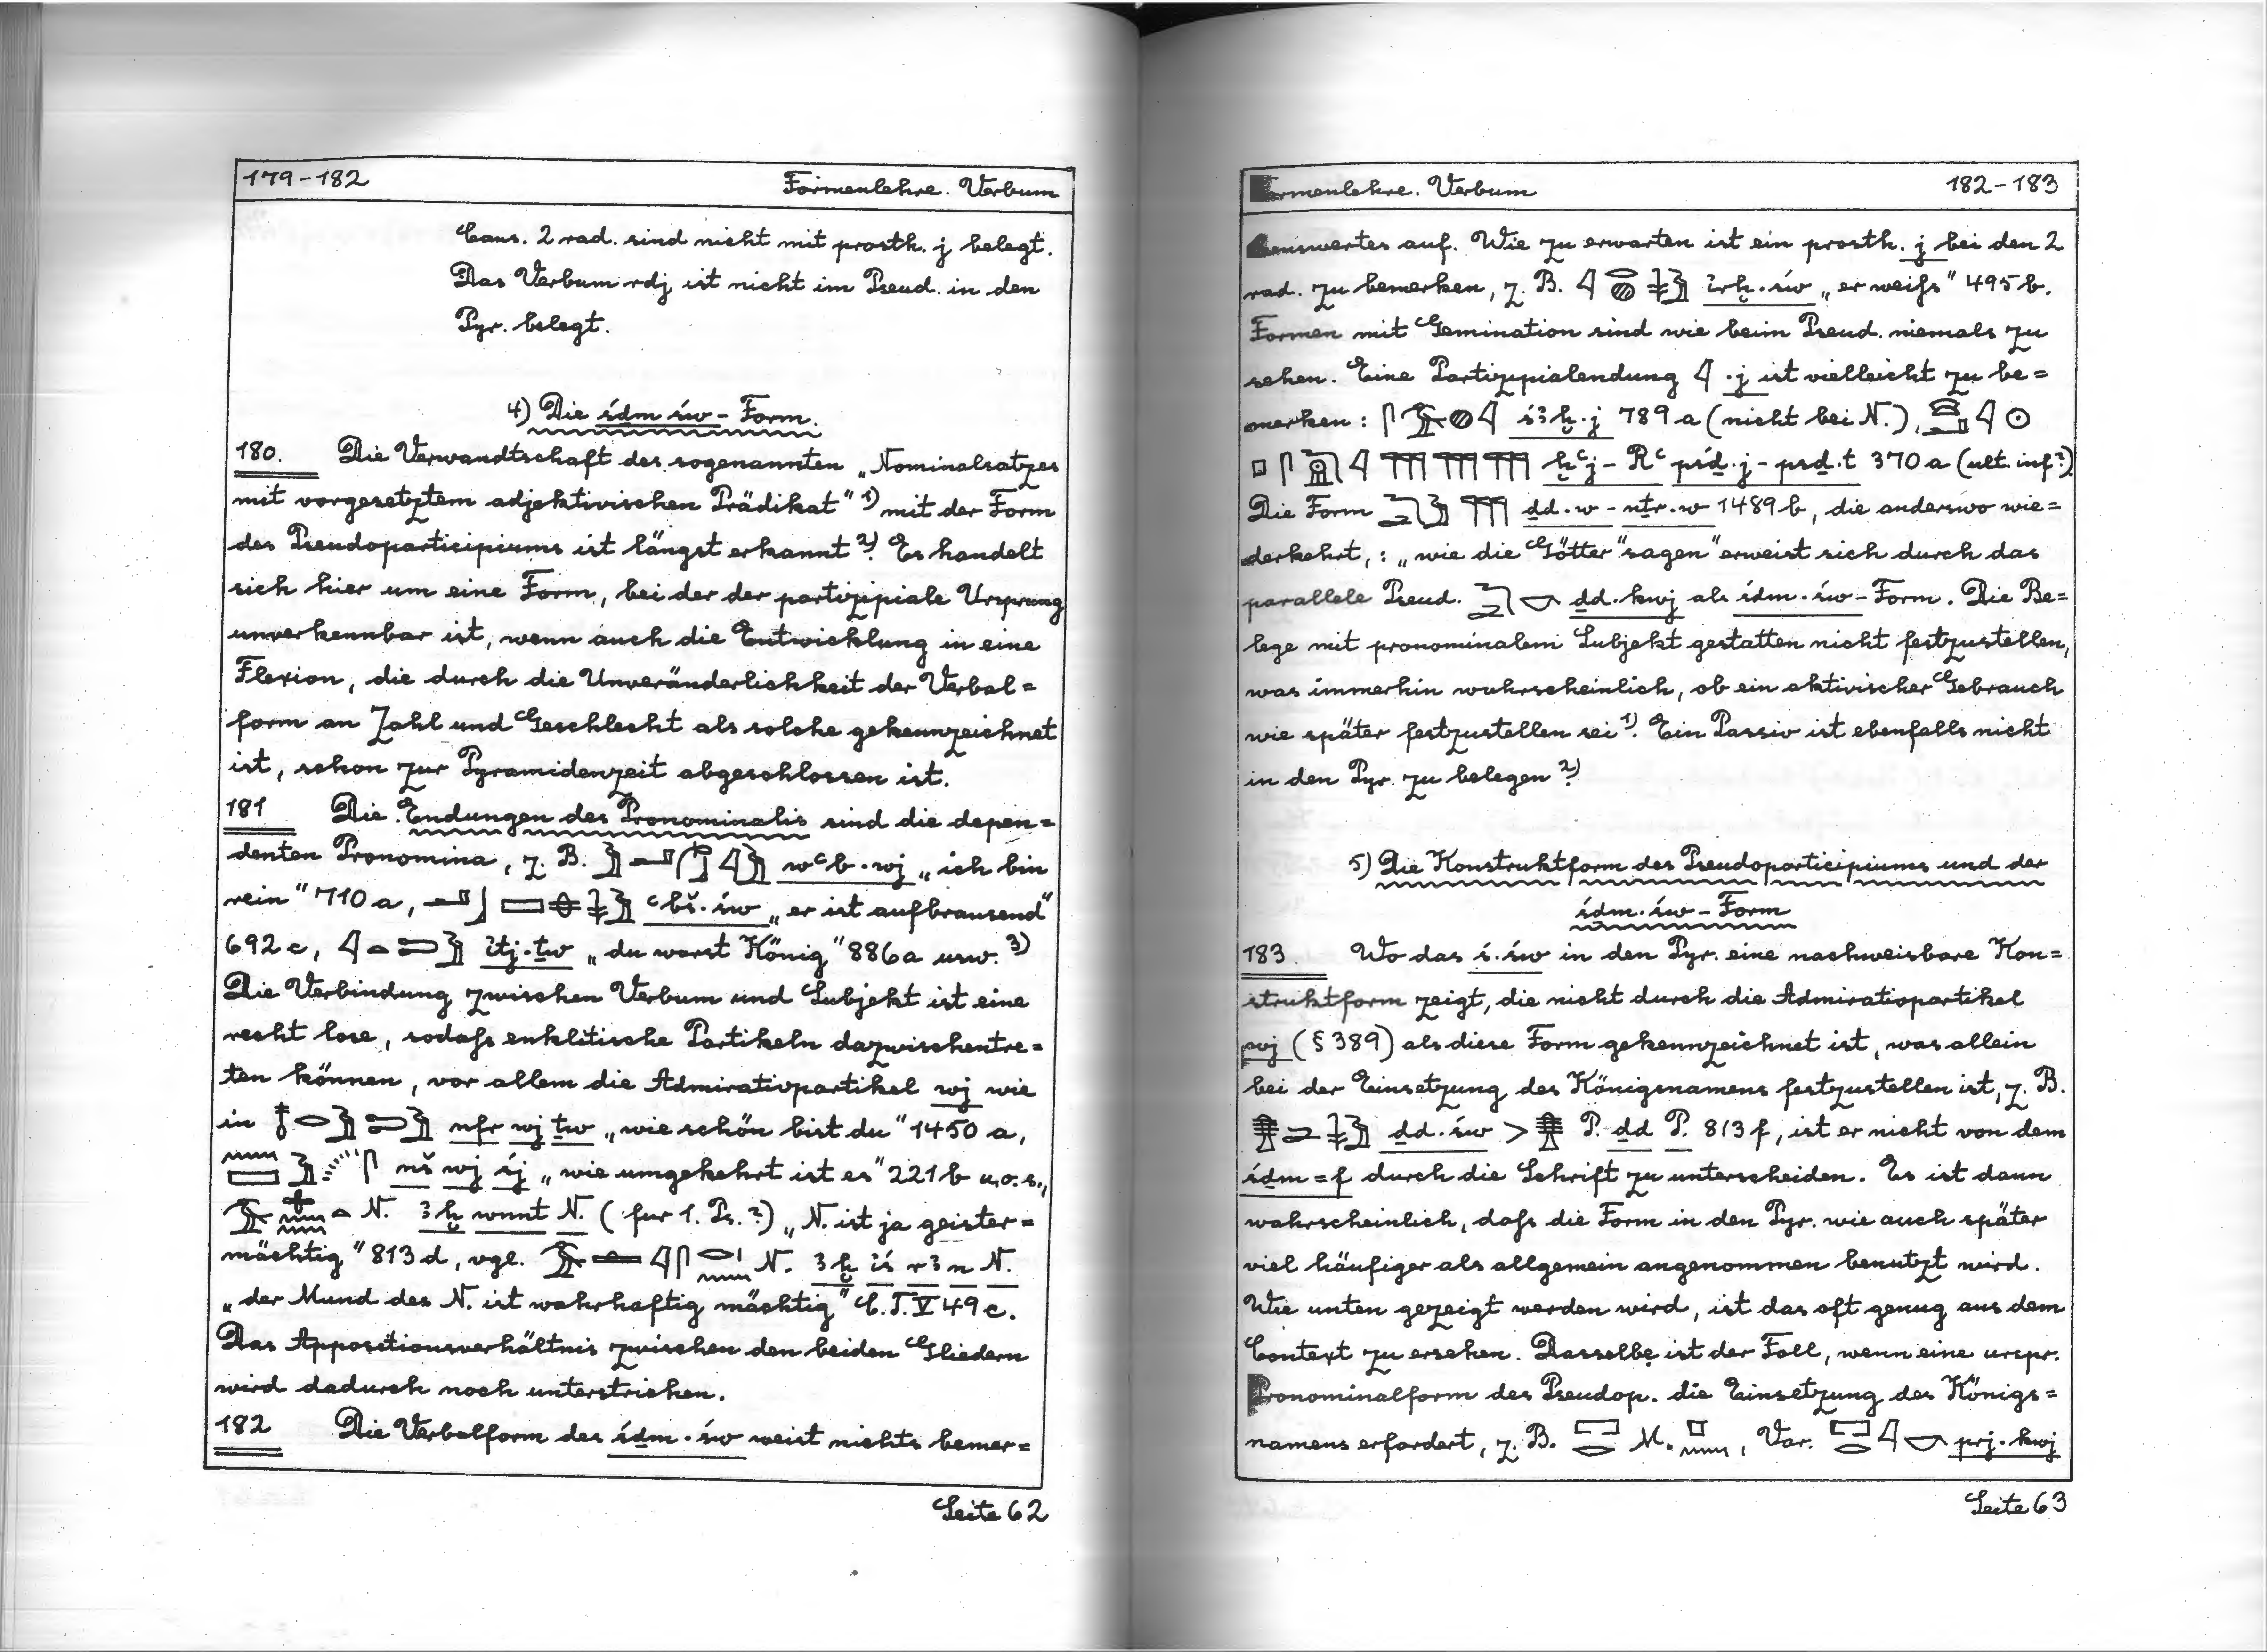 179-182 Formenlehre. Verbum
Caus. 2 rad. sind nicht mit prosth. j belegt.
Das Verbum rdj ist nicht im Pseud. in den
Pyr. belegt.
4) Die śḏm św - Form.
180. Die Verwandtschaft des sogenannten „Nominalsatzes
mit vorgesetztem adjektivischen Prädikat" 1) mit der Form
des Pseudoparticipiums ist längst erkannt 2). Es handelt
sich hier um eine Form, bei der der partizipiale Ursprung
unverkennbar ist, wenn auch die Entwicklung in eine
Flexion, die durch die Unveränderlichkeit der Verbal=
form an Zahl und Geschlecht als solche gekennzeichnet
ist, schon zur Pyramidenzeit abgeschlossen ist.
181 Die Endungen des Pronominalis sind die depen=
denten Pronomina, z. B. wꜥb.wj „ich bin
rein" 710 a, ꜥbš.św „er ist aufbrausend"
692 c, ἰtj.ṯw „du warst König" 886 a usw. 3)
Die Verbindung zwischen Verbum und Subjekt ist eine
recht lose, sodaß enklitische Partikeln dazwischentre=
ten können, vor allem die Admirativpartikel wj wie
in nfr wj ṯw „wie schön bist du" 1450 a,
nš wj śj „wie umgekehrt ist es" 221 b u.o.s.,
N. ꜣḫ wnnt N. (für 1. Ps.?) „N. ist ja geister=
mächtig" 813 d, vgl. N. ꜣḫ ἰś rꜣ n N.
„der Mund des N. ist wahrhaftig mächtig" C.T. V 49 c.
Das Appositionsverhältnis zwischen den beiden Gliedern
wird dadurch noch unterstrichen.
182 Die Verbalform des śḏm.św weist nichts bemer=
Seite 62
Formenlehre. Verbum 182-183
kenswertes auf. Wie zu erwarten ist ein prosth. j bei den 2
rad. zu bemerken, z. B. ἰrḫ.św „er weiß" 495 b.
Formen mit Gemination sind wie beim Pseud. niemals zu
sehen. Eine Partizipialendung .j ist vielleicht zu be=
merken: śꜣḫ.j 789 a (nicht bei N.),
ḫꜥj-Rꜥ pśḏ.j-psḏ.t 370 a (ult. inf?)
Die Form ḏd.w-nṯr.w 1489 b, die anderswo wie=
derkehrt,: „wie die Götter "sagen" erweist sich durch das
parallele Pseud. ḏd.kwj als śḏm.św-Form. Die Be=
lege mit pronominalem Subjekt gestatten nicht festzustellen,
was immerhin wahrscheinlich, ob ein aktivischer Gebrauch
wie später festzustellen sei 1). Ein Passiv ist ebenfalls nicht
in den Pyr. zu belegen 2)
5) Die Konstruktform des Pseudoparticipiums und der
śḏm.św-Form
183. Wo das ś.św in den Pyr. eine nachweisbare Kon=
struktform zeigt, die nicht durch die Admirativpartikel
wj (§ 389) als diese Form gekennzeichnet ist, was allein
bei der Einsetzung des Königsnamens festzustellen ist, z. B.
ḏd.św > P. ḏd P. 813 f, ist er nicht von dem
śḏm=f durch die Schrift zu unterscheiden. Es ist dann
wahrscheinlich, daß die Form in den Pyr. wie auch später
viel häufiger als allgemein angenommen benutzt wird.
Wie unten gezeigt werden wird, ist das oft genug aus dem
Context zu ersehen. Dasselbe ist der Fall, wenn eine urspr.
Pronominalform des Pseudop. die Einsetzung des Königs=
namens erfordert, z. B. M. , Var. prj.kwj
Seite 63